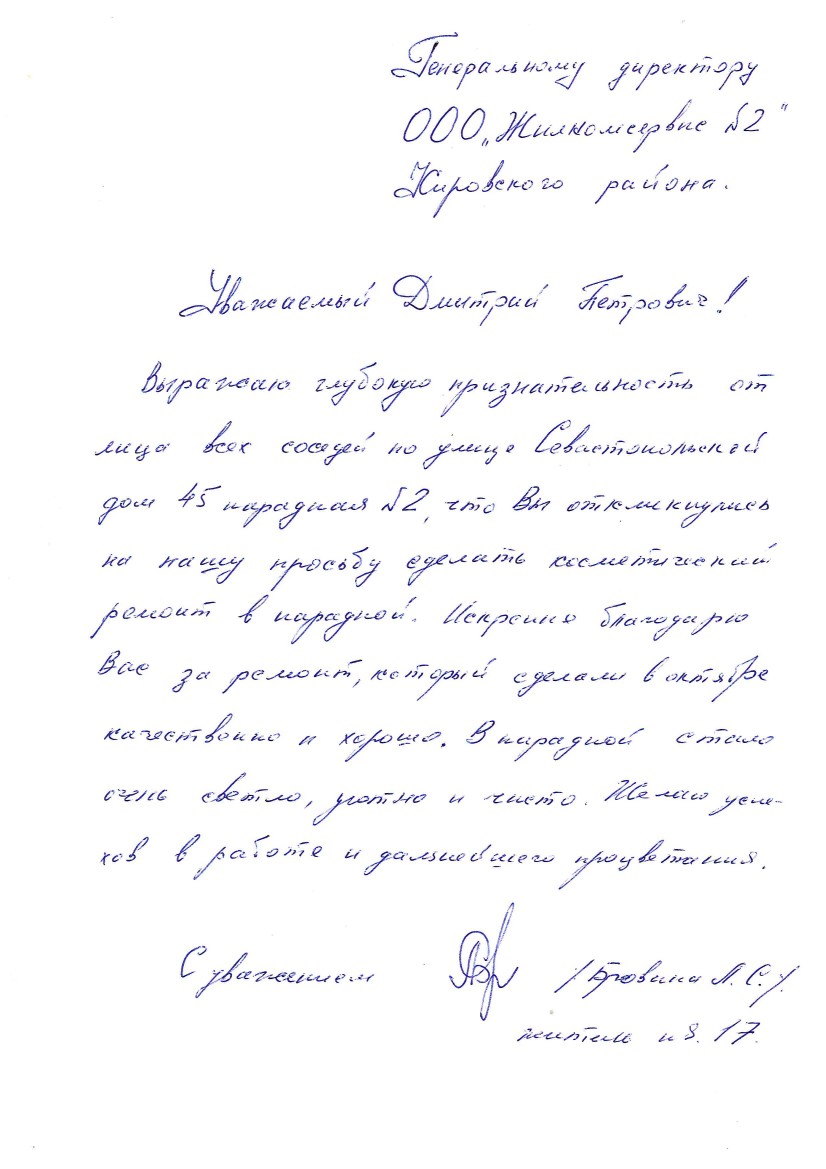 Генеральному директору
ООО „Жилкомсервис №2"
Кировского района.
Уважаемый Дмитрий Петрович!
Выражаю глубокую признательность от
лица всех соседей по улице Севастопольской
дом 45 парадная №2, что Вы откликнулись
на нашу просьбу сделать косметический
ремонт в парадной. Искренне благодарю
Вас за ремонт, который сделали в октябре
качественно и хорошо. В парадной стало
очень светло, уютно и чисто. Желаю успе-
хов в работе и дальнейшего процветания.
С уважением / Бровина Л. С./.
житель 17.